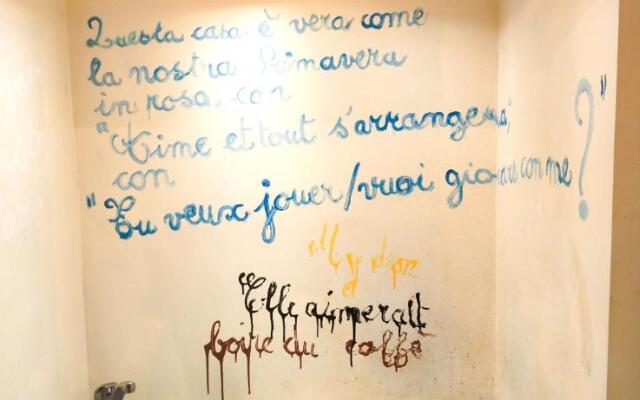 Questa casa è vera come
la nostra Primavera
in rosa, con
"Aime et tout s'arrangera",
con
"Tu veux jouer/vuoi giocare con me ?"
"Elle aimerait
boire du caffè"